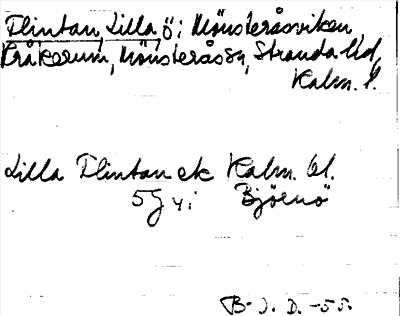 Flintan, Lilla, ö i Mönsteråsviken,
Kråkerum, Mönsterås sn, Stranda hd,
Kalm. l.
Lilla Flintan ek Kalm. bl.
5g yi Björnö
B. J. D. -55.